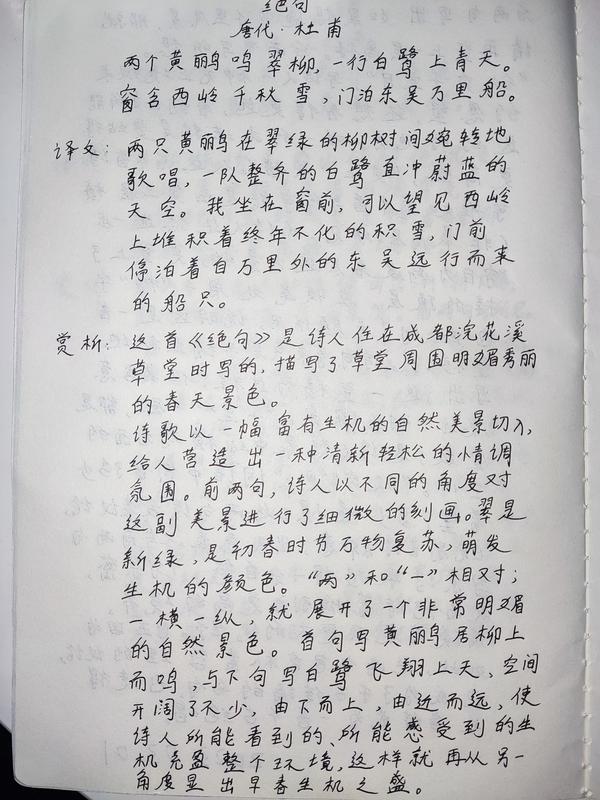 绝句
唐代·杜甫
两个黄鹂鸣翠柳,一行白鹭上青天。
窗含西岭千秋雪,门泊东吴万里船。
译文:两只黄鹂在翠绿的柳树间婉转地
歌唱,一队整齐的白鹭直冲蔚蓝的
天空。我坐在窗前,可以望见西岭
上堆积着终年不化的积雪,门前
停泊着自万里外的东吴远行而来
的船只。
赏析:这首《绝句》是诗人住在成都浣花溪
草堂时写的,描写了草堂周围明媚秀丽
的春天景色。
诗歌以一幅富有生机的自然美景切入,
给人营造出一种清新轻松的情调
氛围。前两句,诗人以不同的角度对
这副美景进行了细微的刻画。翠是
新绿,是初春时节万物复苏,萌发
生机的颜色。“两”和“一”相对;
一横一纵,就展开了一个非常明媚
的自然景色。首句写黄鹂居柳上
而鸣,与下句写白鹭飞翔上天,空间
开阔了不少,由下而上,由近而远,使
诗人所能看到的、所能感受到的生
机充盈整个环境,这样就再从另一
角度显出早春生机之盛。